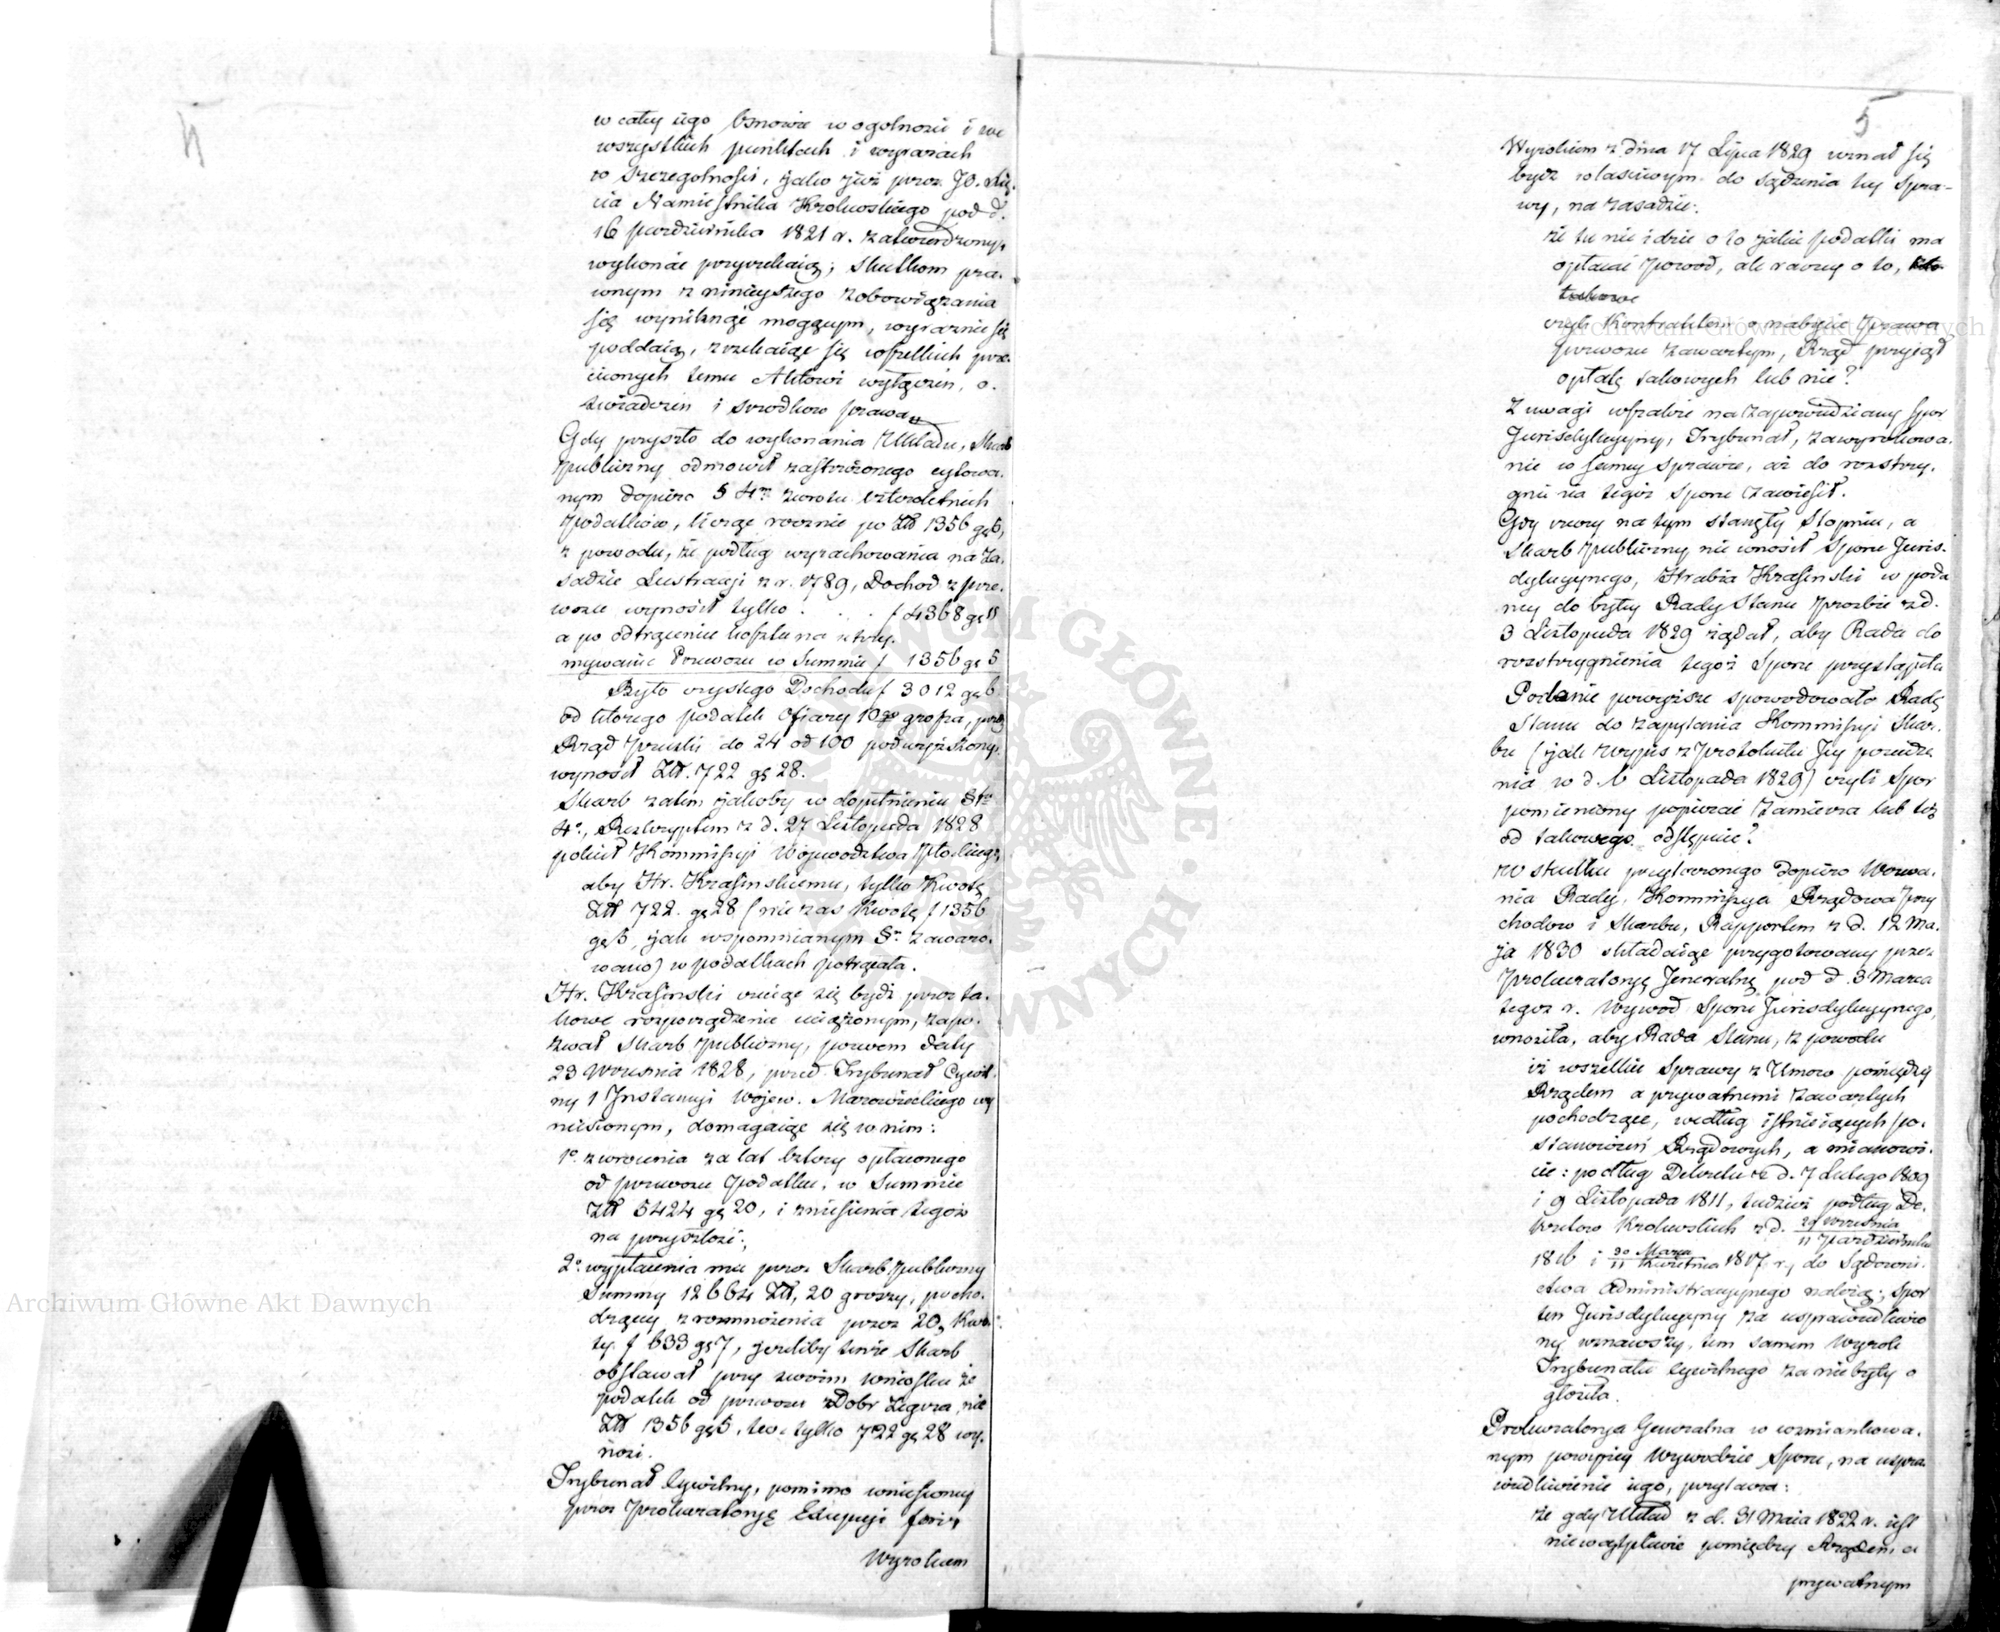 w całey iego Osnowie w ogolności i we
wszystkich punktach i wyrazach
w szczegolności, jako już przez JO. Xię.
cia Namiestnika Krolewskiego pod d.
16 pazdziernika 1821 r. zatwierdzony,
wykonać przyrzekaią; skutkom pra-
wnym z ninieyszego zobowiązania
się wyniknąć mogącym, wyraznie się
poddaią, zrzekaiąc się wszelkich prze.
ciwnych temu Aktowi wyłączeń, o.
świadczeń i srodkow prawa
Gdy przyszło do wykonania Układu, Skarb
Publiczny odmowił zastrzeżonego cytowa.
nym dopiero § 4m zwrotu czteroletnich
Podatkow, licząc rocznie po Zł 1356 gr 5,
z powodu, że podług wyrachowania na Za.
sadzie Lustracyi z r. 1789, Dochod z prze.
wozu wynosił tylko . . . f 4368 gr 11
a po odtrąceniu kosztu na utrzy.
mywanie Przewozu w Summie f 1356 gr 5
Było czystego Dochodu f 3012 gr 6
od ktorego podatek Ofiary 10go grosza, przez
Rząd Pruski do 24 od 100 podwyższony,
wynosił Zł. 722 gr 28.
Skarb zatem jakoby w dopełnieniu §fu
4o, Reskryptem z d. 27 Listopada 1828
polecił Kommissyi Woiewodztwa Płockiego,
aby Hr. Krasinskiemu, tylko Kwotę
Zł 722 gr 28 (nie zas Kwotę f 1356
gr 5, jak wspomnianym §m zawaro.
wano) w podatkach potrącała.
Hr. Krasinski czuiąc się bydź przez ta.
kowe rozporządzenie uciążonym, zapo.
zwał Skarb Publiczny, pozwem daty
23 Wrzesnia 1828, przed Trybunał Cywil.
ny 1 Instancyi Wojew. Mazowieckiego wy
niesionym, domagaiąc się w nim:
1o. zwrocenia za lat cztery opłaconego
od przewozu Podatku, w Summie
Zł 5424 gr 20, i zniesienia tegoż
na przyszłość;
2o. wypłacenia mu przez Skarb Publiczny
Summy 12664 Zł, 20 groszy, pocho.
dzącey z rozmnożenia przez 20, Kwo.
ty f 633 gr 7, jeżeliby tenże Skarb
obstawał przy swoim wniosku że
podatek od przewozu z Dobr Zegrza, nie
Zł 1356 gr 5, lecz tylko 722 gr 28 wy.
nosi.
Trybunał Cywilny, pomimo wniesioney
przez Prokuratoryę Excepcyi fori,
Wyrokiem
5
Wyrokiem z dnia 17 Lipca 1829 uznał się
bydź własciwym do sądzenia tey Spra-
wy, na zasadzie:
że tu nie idzie o to jakie podatki ma
opłacać Powod, ale raczey o to,
takowe
czyli Kontraktem o nabycie Prawa
przewozu zawartym, Rząd przyiął
opłatę takowych lub nie?
Z uwagi wszakże na zapowiedziany Spor
Jurisdykcyjny, Trybunał, zawyrokowa.
nie w samey sprawie, aż do rozstrzy.
gnienia tegoż Sporu zawiesił.
Gdy rzeczy na tym stanęły Stopniu, a
Skarb Publiczny nie wnosił Sporu Juris.
dykcyjnego, Hrabia Krasinski w poda
ney do byłey Rady Stanu Prozbie z d.
3 Listopada 1829 żądał, aby Rada do
rozstrzygnienia tegoż Sporu przystąpiła
Podanie powyższe spowodowało Radę
Stanu do zapytania Kommissyi Skar.
bu (jak Wypis z Protokułu Jey posiedze
nia w d. 6 Listopada 1829) czyli Spor
pomieniony popierać zamierza lub też
od takowego odstępuie?
W skutku przytoczonego dopiero Wezwa.
nia Rady, Kommissya Rządowa Przy
chodow i Skarbu, Rapportem z d. 12 Ma.
ja 1830 składaiąc przygotowany przez
Prokuratoryę Jeneralną pod d. 3 Marca
tegoż r. Wywod Sporu Jurisdykcyjnego,
wnosiła, aby Rada Stanu, z powodu
iż wszelkie Sprawy z Umow pomiędzy
Rządem a prywatnemi zawartych
pochodzące, według istnieiących po.
stanowień Rządowych, a mianowi.
cie: podług Dekretu z d. 7 Lutego 1809
i 9 Listopada 1811, tudzież podług De.
kretow Krolewskich z d. 29 Września
11 Pazdziernika
1816 i 30 Marca
11 Kwietnia 1817 r., do Sądowni.
ctwa Administracyjnego należą, Spor
ten Jurisdykcyjny za usprawiedliwio
ny uznawszy, tem samem Wyrok
Trybunału Cywilnego za niebyły o
głosiła.
Prokuratorya Generalna w wzmiankowa.
nym powyżey Wywodzie Sporu, na uspra
wiedliwienie iego, przytacza:
że gdy Układ z d. 31 Maia 1822 r. iest
niewątpliwie pomiędzy Rządem a
prywatnym
Archiwum Główne Akt Dawnych
Archiwum Główne Akt Dawnych